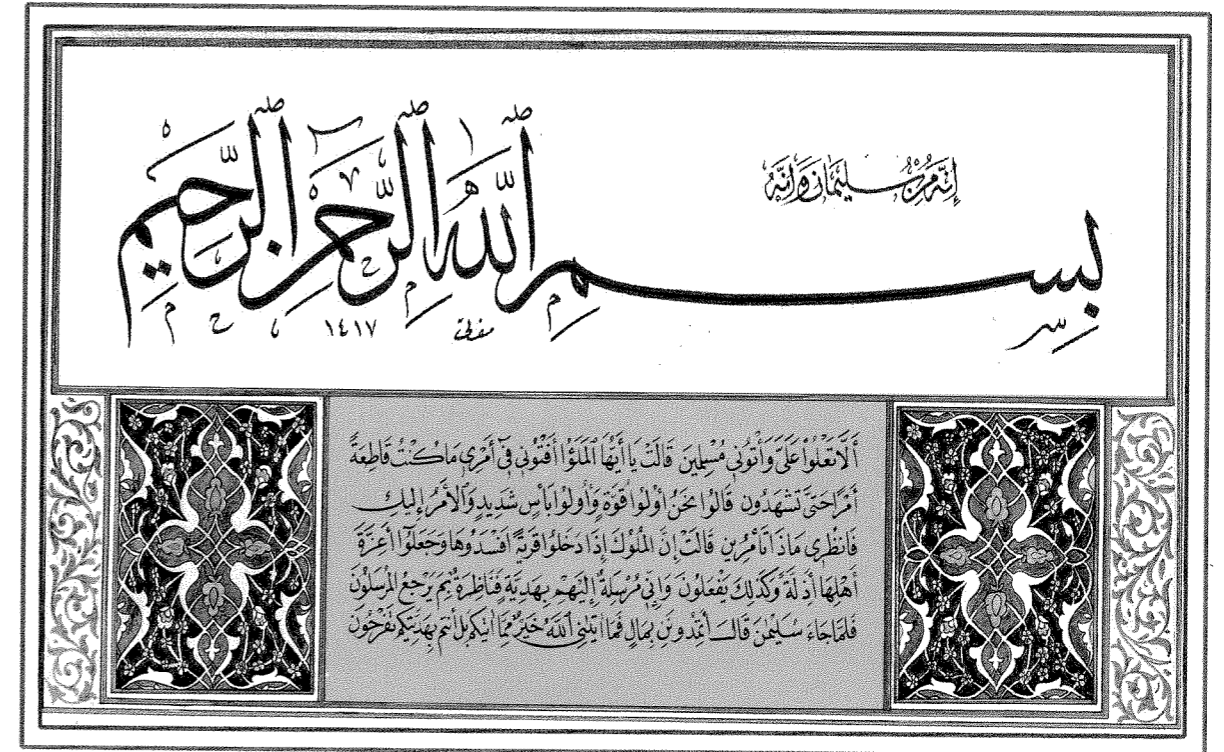 إِنَّهُ مِنْ سُلَيْمَانَ وَإِنَّهُ
بِسْمِ ٱللَّهِ ٱلرَّحْمَٰنِ ٱلرَّحِيمِ
١٤١٧
أَلَّا تَعْلُوا عَلَيَّ وَأْتُونِي مُسْلِمِينَ قَالَتْ يَا أَيُّهَا ٱلْمَلَؤُا أَفْتُونِي فِي أَمْرِي مَا كُنْتُ قَاطِعَةً
أَمْرًا حَتَّى تَشْهَدُونِ قَالُوا نَحْنُ أُولُوا قُوَّةٍ وَأُولُوا بَأْسٍ شَدِيدٍ وَٱلْأَمْرُ إِلَيْكِ
فَانْظُرِي مَاذَا تَأْمُرِينَ قَالَتْ إِنَّ ٱلْمُلُوكَ إِذَا دَخَلُوا قَرْيَةً أَفْسَدُوهَا وَجَعَلُوا أَعِزَّةَ
أَهْلِهَا أَذِلَّةً وَكَذَلِكَ يَفْعَلُونَ وَإِنِّي مُرْسِلَةٌ إِلَيْهِمْ بِهَدِيَّةٍ فَنَاظِرَةٌ بِمَ يَرْجِعُ ٱلْمُرْسَلُونَ
فَلَمَّا جَاءَ سُلَيْمٰنَ قَالَ أَتُمِدُّونَنِ بِمَالٍ فَمَا آتٰنِيَ ٱللَّهُ خَيْرٌ مِمَّا آتٰكُمْ بَلْ أَنْتُمْ بِهَدِيَّتِكُمْ تَفْرَحُونَ